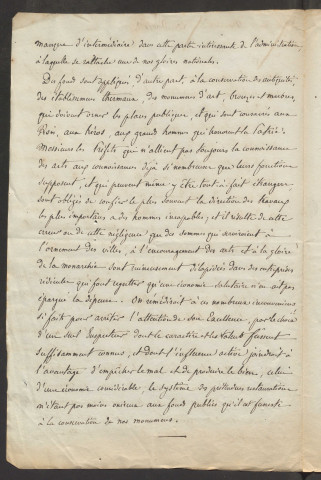 manque d'intermédiaire dans cette partie intéressante de l'administration,
à laquelle se rattache une de nos gloires nationales.
Des fonds sont appliqués d'autre part, à la conservation des antiquités
des établissemens thermaux, des monumens d'art, bronzes et marbres,
qui doivent orner les places publiques, et qui sont consacrés aux
Rois, aux héros, aux grands hommes qui honorent la Patrie.
Messieurs les Préfets qui n'allient pas toujours la connaissance
des arts aux connaissances déjà si nombreuses que leurs fonctions
supposent, et qui peuvent même y être tout à fait étrangers
sont obligés de confier le plus souvent la direction des travaux
les plus importans à des hommes incapables; et il résulte de cette
erreur ou de cette négligence que des sommes qui serviroient à
l'ornement des villes, à l'encouragement des arts et à la gloire
de la monarchie sont ruineusement dilapidées dans des entreprises
ridicules qui font regretter qu'une économie salutaire n'en ait pas
épargné la dépense. On remédiroit à ces nombreux inconvéniens
si fait pour arrêter l'attention de son Excellence, par le choix
d'un seul Inspecteur dont le caractère et les talents fussent
suffisamment connus, et dont l'influence active joindroit à
l'avantage d'empêcher le mal et de produire le bien, celui
d'une économie considérable, le système des prétendues restaurations
n'étant pas moins onéreux aux fonds publics qu'il est funeste
à la conservation de nos monumens.